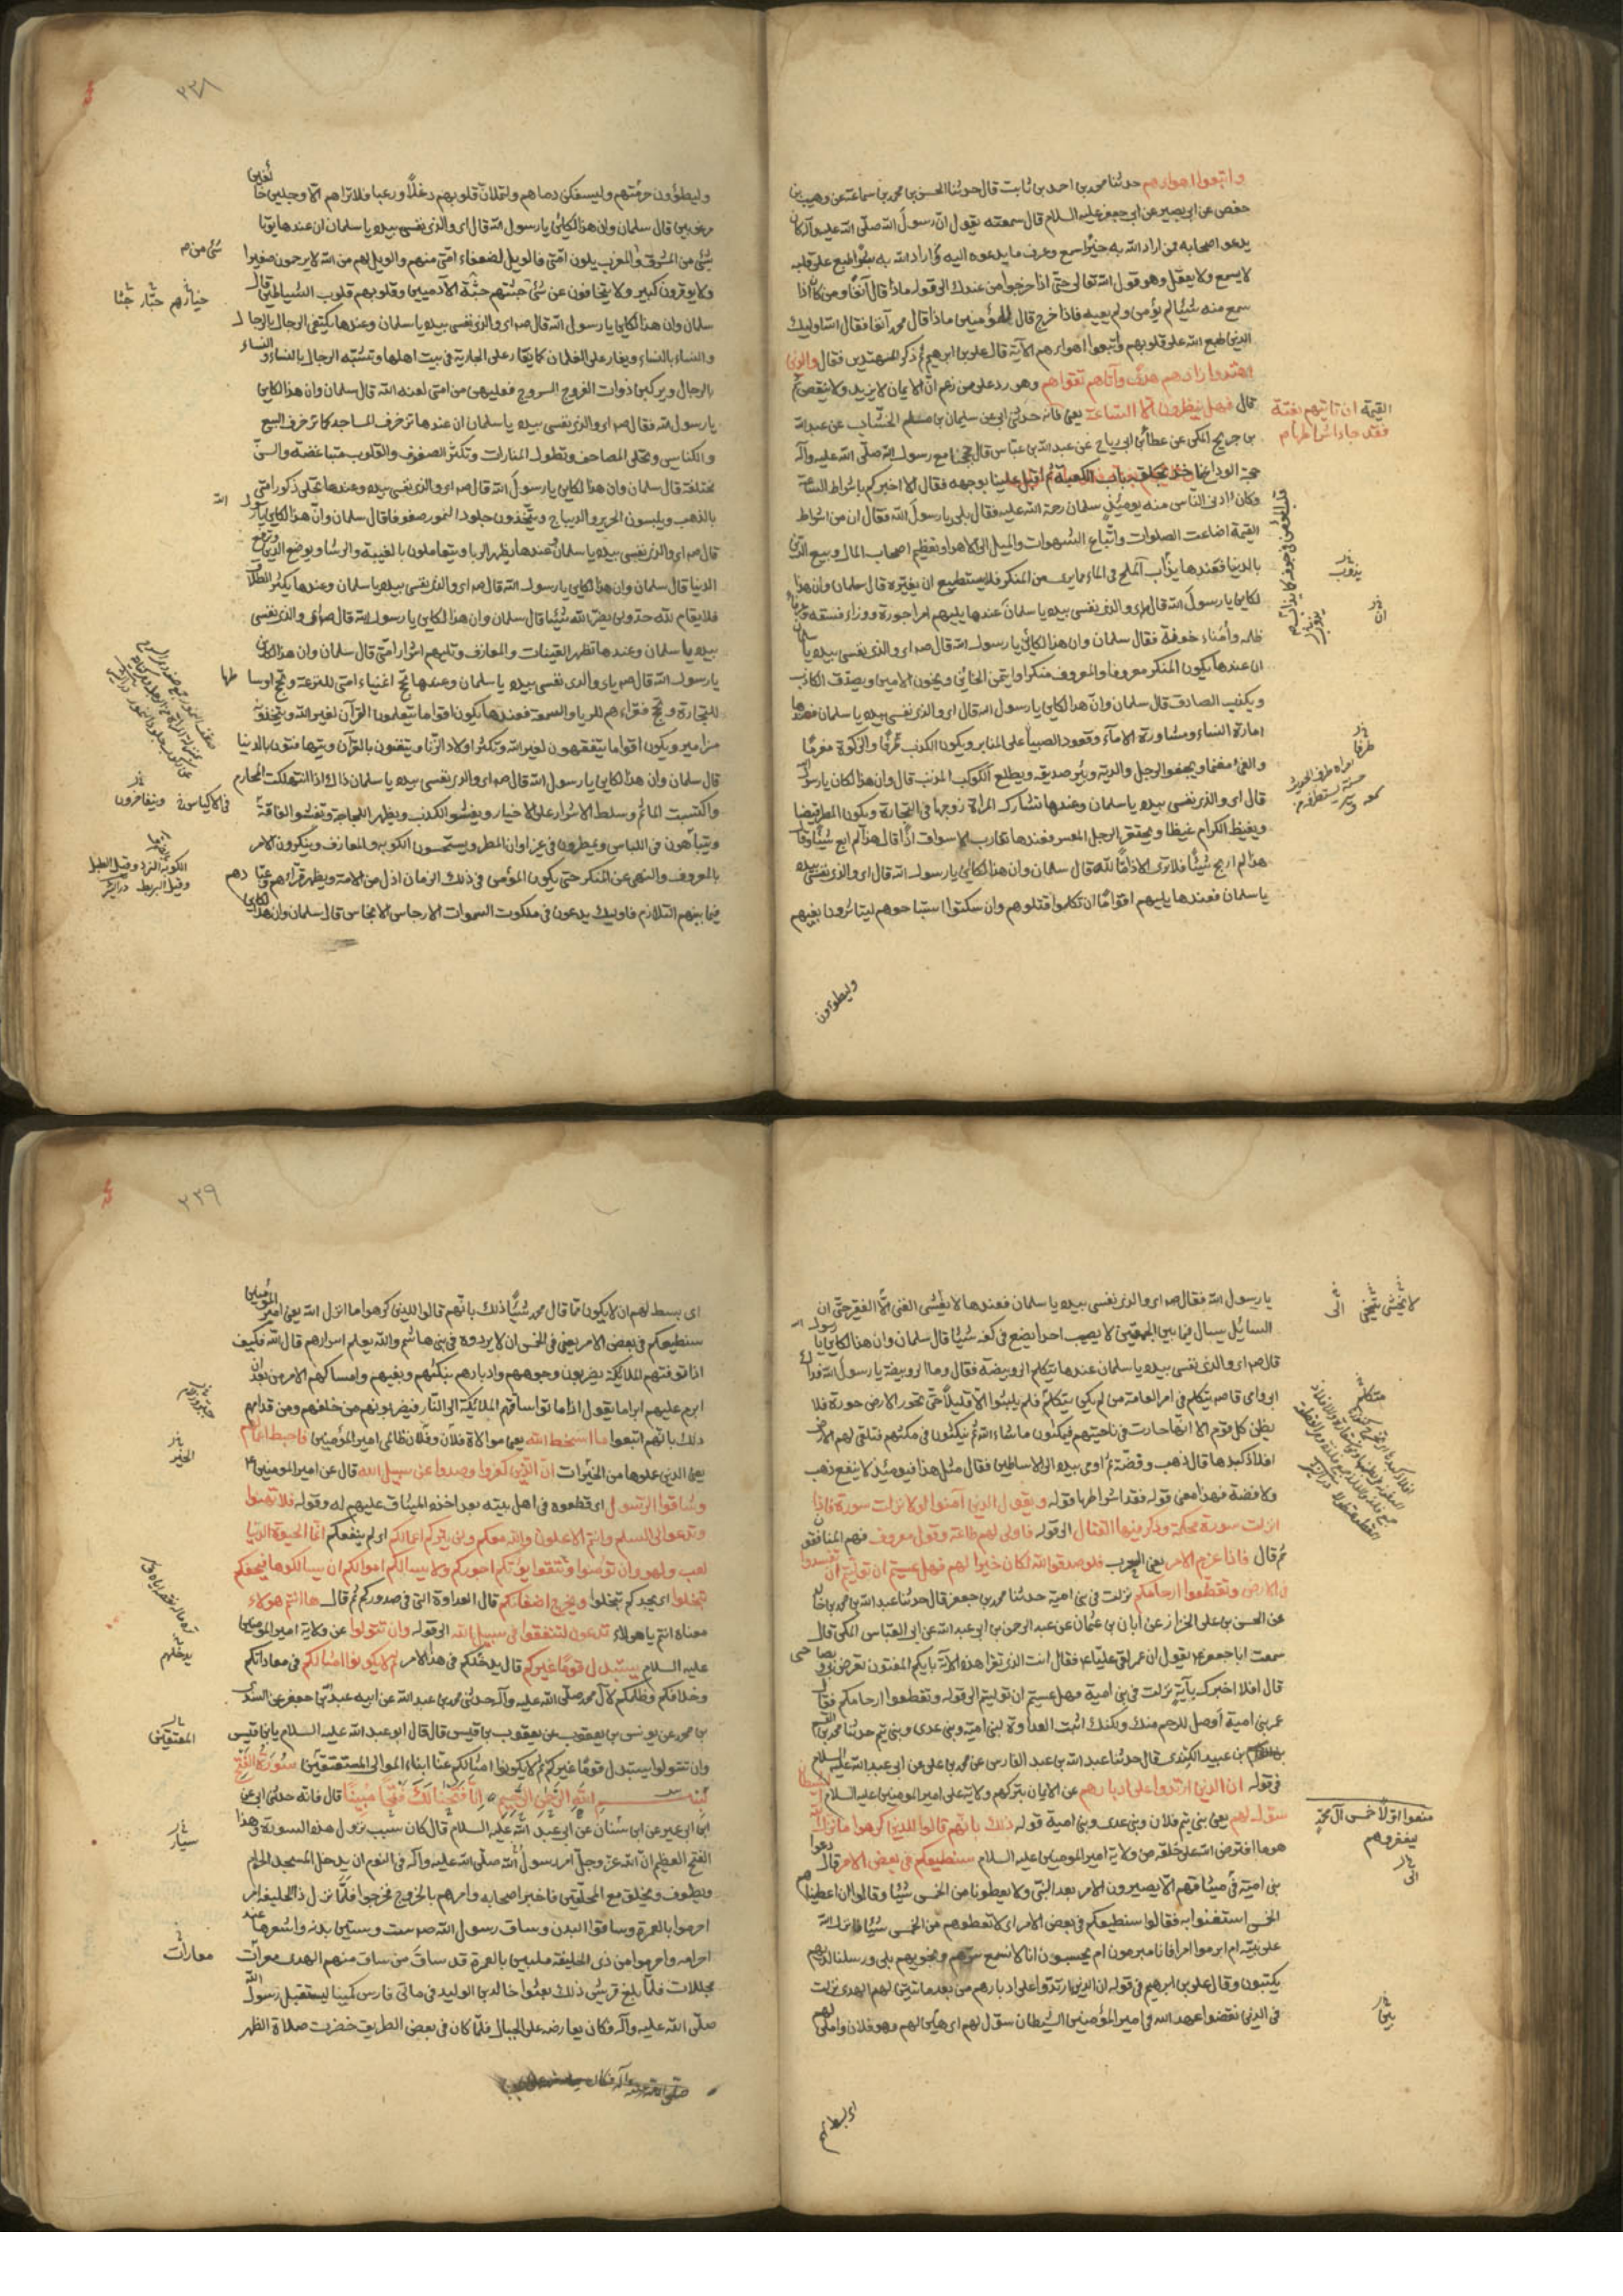 واتبعوا اهواءهم حدثنا محمد بن احمد بن ثابت قال حدثنا الحسن بن محمد بن سماعة عن وهيب بن
حفص عن ابي بصير عن ابي جعفر عليه السلام قال سمعته يقول ان رسول الله صلى الله عليه وآله كان
يدعو اصحابه فمن اراد الله به خيرا سمع وعرف ما يدعوه اليه ومن اراد الله به طبع على قلبه
لا يسمع ولا يعقل وهو قول الله تعالى حتى اذا خرجوا من عندك الى قوله ماذا قال آنفا ومن كان اذا
سمع منه شيئا لم يؤمن ولم يعيه فاذا خرج قال للمؤمنين ماذا قال محمد آنفا فقال الله اوليك
الذين طبع الله على قلوبهم واتبعوا اهواءهم الآية قال علي بن ابرهيم ثم ذكر المهتدين فقال والذين
اهتدوا زادهم هدى وآتاهم تقواهم وهو رد على من زعم ان الايمان لا يزيد ولا ينقص ثم
قال فهل ينظرون الا الساعة يعني فانه حدثني ابي عن سليمان بن مسلم الخشاب عن عبد الله
القيمة ان تاتيهم بغتة
فقد جاء اشراطها م
بن جريح المكي عن عطا بن ابي رياح عن عبد الله بن عباس قال حججنا مع رسول الله صلى الله عليه وآله
حجة الوداع فاخذ بحلقه باب الكعبة ثم اقبل علينا بوجهه فقال الا اخبركم باشراط الساعة
وكان ادنى الناس منه يومئذ سلمان رحمة الله عليه فقال بلى يا رسول الله فقال ان من اشراط
القيمة اضاعت الصلوات واتباع الشهوات والميل الى الاهواء وتعظيم اصحاب المال وبيع الدين
بالدنيا فعندها يذاب الملح في الماء مما يرى من المنكر فلا يستطيع ان يغيره قال سلمان وان هذا
يذوب
لكاين يا رسول الله قال اي والذي نفسي بيده يا سلمان عندها يليهم امرا جورة ووزراء فسقه وعرفاء
ظلمه وامناء خونة فقال سلمان وان هذا لكائن يا رسول الله قال اي والذي نفسي بيده يا سلمان
ان عندها يكون المنكر معروفا والمعروف منكرا وايتمن الخائن ويخون الامين ويصدق الكاذب
ويكذب الصادق قال سلمان وان هذا لكاين يا رسول الله قال اي والذي نفسي بيده يا سلمان فعندها
امارة النساء ومشاورة الاماء وقعود الصبيان على المنابر ويكون الكذب ظرفا والزكوة مغرما
والفئ مغنما ويجفو الرجل والديه ويبر صديقه ويطلع الكوكب المذنب قال وان هذا لكان يا رسول الله
قال اي والذي نفسي بيده يا سلمان وعندها تشارك المراة زوجها في التجارة ويكون المطر قيضا
ويغيظ الكرام غيظا ويحتقر الرجل المعسر فعندها تقارب الاسواق اذا قال هذا لم ابع شيئا وقال
هذا لم اربح شيئا فلا ترى الا ذاما لله قال سلمان وان هذا لكائن يا رسول الله قال اي والذي نفسي بيده
يا سلمان فعندها يليهم اقواما ان تكلموا قتلوهم وان سكتوا استباحوهم ليتاثرون بفيهم
وليطوءن
٢٣٨
وليطؤون حرمتهم وليسفكن دماهم ولتملان قلوبهم دغلا ورعبا فلا تراهم الا وجلين خائفين
مرعوبين قال سلمان وان هذا لكائن يا رسول الله قال اي والذي نفسي بيده يا سلمان ان عندها يوتا
بشئ من المشرق وشئ من المغرب يلون امتي فالويل لضعفاء امتي منهم والويل لهم من الله لا يرحون صغيرا
ولا يوقرون كبير ولا يتخافون عن شئ جثتهم جثة الآدميين وقلوبهم قلوب الشياطين قال
سلمان وان هذا لكاين يا رسول الله قال صم اي والذي نفسي بيده يا سلمان وعندها يكتفى الرجال بالرجال
والنساء بالنساء ويغار على الغلمان كما يغار على الجارية في بيت اهلها وتشبه الرجال بالنساء والنساء
بالرجال ويركبن ذوات الفروج السروج فعليهن من امتي لعنه الله قال سلمان وان هذا لكاين
يا رسول الله فقال صم اي والذي نفسي بيده يا سلمان ان عندها تزخرف المساجد كما تزخرف البيع
والكنايس وتحلى المصاحف وتطول المنارات وتكثر الصفوف والقلوب متباغضه والسن
مختلفة قال سلمان وان هذا لكاين يا رسول الله قال صم اي والذي نفسي بيده وعندها تحلى ذكور امتي
بالذهب ويلبسون الحرير والديباج ويتخذون جلود النمور صفوفا قال سلمان وان هذا لكاين يا رسول الله
قال صم اي والذي نفسي بيده يا سلمان وعندها يظهر الربا ويتعاملون بالغيبة والرشا ويوضع الدين وترفع
الدنيا قال سلمان وان هذا لكاين يا رسول الله قال صم اي والذي نفسي بيده يا سلمان وعندها يكثر الطلاق
فلا يقام لله حد ولن يضر الله شيئا قال سلمان وان هذا لكاين يا رسول الله قال صم اي والذي نفسي
بيده يا سلمان وعندها تظهر القينات والمعازف وتليهم اشرار امتي قال سلمان وان هذا لكاين
يا رسول الله قال صم اي والذي نفسي بيده يا سلمان وعندها تحج اغنياء امتي للنزهة وتحج اوساطها
للتجارة وتحج فقراءهم للريا والسمعة فعندها يكون اقواما يتعلمون القرآن لغير الله ويتخذونه
مزامير ويكون اقواما يتفقهون لغير الله وتكثر اولاد الزنا ويتغنون بالقرآن ويتهافتون بالدنيا
قال سلمان وان هذا لكاين يا رسول الله قال صم اي والذي نفسي بيده يا سلمان ذاك اذا انتهكت المحارم
واكتسبت المآثم وسلط الاشرار على الاخيار ويفشو الكذب ويظهر اللجاجة وتفشو الفاقة
ويتباهون في اللباس ويمطرون في غير اوان المطر ويستحسنون الكوبه والمعازف وينكرون الامر
بالمعروف والنهي عن المنكر حتى يكون المؤمن في ذلك الزمان اذل من الامة ويظهر قراءهم وعبادهم
فيما بينهم التلازم فاوليك يدعون في ملكوت السموات الارجاس الانجاس قال سلمان وان هذا لكاين
يا رسول الله فقال صم اي والذي نفسي بيده يا سلمان فعندها لا يخشى الغني الا الفقر حتى ان
السايل يسال فيما بين الجمعتين لا يصيب احدا يضع في كفه شيئا قال سلمان وان هذا لكاين يا رسول الله
قال صم اي والذي نفسي بيده يا سلمان عندها يتكلم الروبيضة فقال وما الروبيضة يا رسول الله فداك
ابي وامي قال صم يتكلم في امر العامة من لم يكن يتكلم فلم يلبثوا الا قليلا حتى تخور الارض خورة فلا
يظن كل قوم الا انها خارت في ناحيتهم فيمكثون ما شاء الله ثم ينكثون في مكثهم فتلقى لهم الارض
افلاذ كبدها قال ذهب وفضة ثم اومى بيده الى الاساطين فقال مثل هذا فيومئذ لا ينفع ذهب
ولا فضة فهذا معنى قوله فقد جاء اشراطها قوله ويقول الذين آمنوا لولا نزلت سورة فاذا
انزلت سورة محكمة وذكر فيها القتال الى قوله فاولى لهم طاعة وقول معروف فهم المنافقون
ثم قال فاذا عزم الامر يعني الحرب فلو صدقوا الله لكان خيرا لهم فهل عسيتم ان توليتم ان تفسدوا
في الارض وتقطعوا ارحامكم نزلت في بني امية حدثنا محمد بن جعفر قال حدثنا عبد الله بن محمد بن خالد
عن الحسن بن علي الخزاز عن ابان بن عثمان عن عبد الرحمن بن ابي عبد الله عن ابي العباس المكي قال
سمعت ابا جعفر ع يقول ان عمر لقى عليا ع فقال انت الذي تقرا هذه الآية بايكم المفتون تعرض بي وبصاحبي
قال افلا اخبرك بآية نزلت في بني امية فهل عسيتم ان توليتم الى قوله وتقطعوا ارحامكم فقال
عمر بني امية اوصل للرحم منك ولكنك اثبت العداوة لبني امية وبني عدي وبني تيم حدثنا محمد بن القسم
بن عبيد الكندي قال حدثنا عبد الله بن عبد الفارس عن محمد بن علي عن ابي عبد الله عليه السلام
في قوله ان الذين ارتدوا على ادبارهم عن الايمان بتركهم ولاية علي امير المومنين عليه السلام الشيطان
سول لهم يعني بني تيم فلان وبني عدي وبني امية قوله ذلك بانهم قالوا للذين كرهوا ما نزل الله
هو ما افترض الله على خلقه من ولاية امير المومنين عليه السلام سنطيعكم في بعض الامر قال دعوا
بني امية في ميثاقهم الا يصيرون الامر بعد النبي ولا يعطونا من الخمس شيئا وقالوا ان اعطيناهم
الخمس استغنوا به فقالوا سنطيعكم في بعض الامر اي لا تعطوهم من الخمس شيئا فانزل الله
على نبيه ام ابرموا امرا فانا مبرمون ام يحسبون انا لا نسمع سرهم ونجويهم بلى ورسلنا لديهم
يكتبون وقال علي بن ابرهيم في قوله ان الذين ارتدوا على ادبارهم من بعد ما تبين لهم الهدى نزلت
في الذين نقضوا عهد الله في امير المؤمنين الشيطان سول لهم اي هين لهم وهو فلان واملى لهم
اي بسط لهم
٢٣٩
اي بسط لهم ان لا يكون مما قال محمد شيئا ذلك بانهم قالوا للذين كرهوا ما انزل الله يعني امير المؤمنين
سنطيعكم في بعض الامر يعني في الخمس ان لا يردوه في بني هاشم والله يعلم اسرارهم قال الله فكيف
اذا توفتهم الملائكة يضربون وجوههم وادبارهم بنكثهم وبغيهم وامساكهم الامر من بعد ان
ابرم عليهم ابراما يقول اذا ماتوا ساقتهم الملائكة الى النار فيضربونهم من خلفهم ومن قدامهم
ذلك بانهم اتبعوا ما اسخط الله يعني موالاة فلان وفلان ظالمي امير المؤمنين فاحبط اعمالهم
يعني الذين عملوها من الخيرات ان الذين كفروا وصدوا عن سبيل الله قال عن امير المومنين ع
وشاقوا الرسول اي قطعوه في اهل بيته بعد اخذه الميثاق عليهم له وقوله فلا تهنوا
وتدعوا الى السلم وانتم الاعلون والله معكم ولن يتركم اعمالكم اي لم ينقصكم انما الحيوة الدنيا
لعب ولهو وان تومنوا وتتقوا يؤتكم اجوركم ولا يسالكم اموالكم ان يسالكموها فيحفكم
تبخلوا اي يجدكم تبخلوا ويخرج اضغانكم قال العداوة التي في صدوركم ثم قال ها انتم هولاء
معناه انتم يا هولاء تدعون لتنفقوا في سبيل الله الى قوله وان تتولوا عن ولاية امير المومنين
عليه السلام يستبدل قوما غيركم قال يدخلكم في هذا الامر ثم لا يكونوا امثالكم في معاداتكم
وخلافكم وظلمكم لآل محمد صلى الله عليه وآله حدثني محمد بن عبد الله عن ابيه عبد الله بن جعفر عن السندي
بن محمد عن يونس بن يعقوب عن يعقوب بن قيس قال قال ابو عبد الله عليه السلام يا بن قيس
وان تتولوا يستبدل قوما غيركم ثم لا يكونوا امثالكم عنا ابناء الموالي المعتقين سورة الفتح
بسم الله الرحمن الرحيم انا فتحنا لك فتحا مبينا قال فانه حدثني ابي عن
ابن ابي عمير عن ابن سنان عن ابي عبد الله عليه السلام قال كان سبب نزول هذه السورة وهذا
الفتح العظيم ان الله عز وجل امر رسول الله صلى الله عليه وآله في النوم ان يدخل المسجد الحرام
ويطوف ويحلق مع المحلقين فاخبر اصحابه وامرهم بالخروج فخرجوا فلما نزل ذا الحليفة امر
احرموا بالعمرة وساقوا البدن وساق رسول الله صم ست وستين بدنه واشعرها عند
احرامه واحرموا من ذي الحليفة ملبين بالعمرة قد ساق من ساق منهم الهدى معرات
مجللات فلما بلغ قريش ذلك بعثوا خالد بن الوليد في ماتي فارس كمينا ليستقبل رسول الله
صلى الله عليه وآله فكان يعارضه على الجبال فلما كان في بعض الطريق حضرت صلاة الظهر